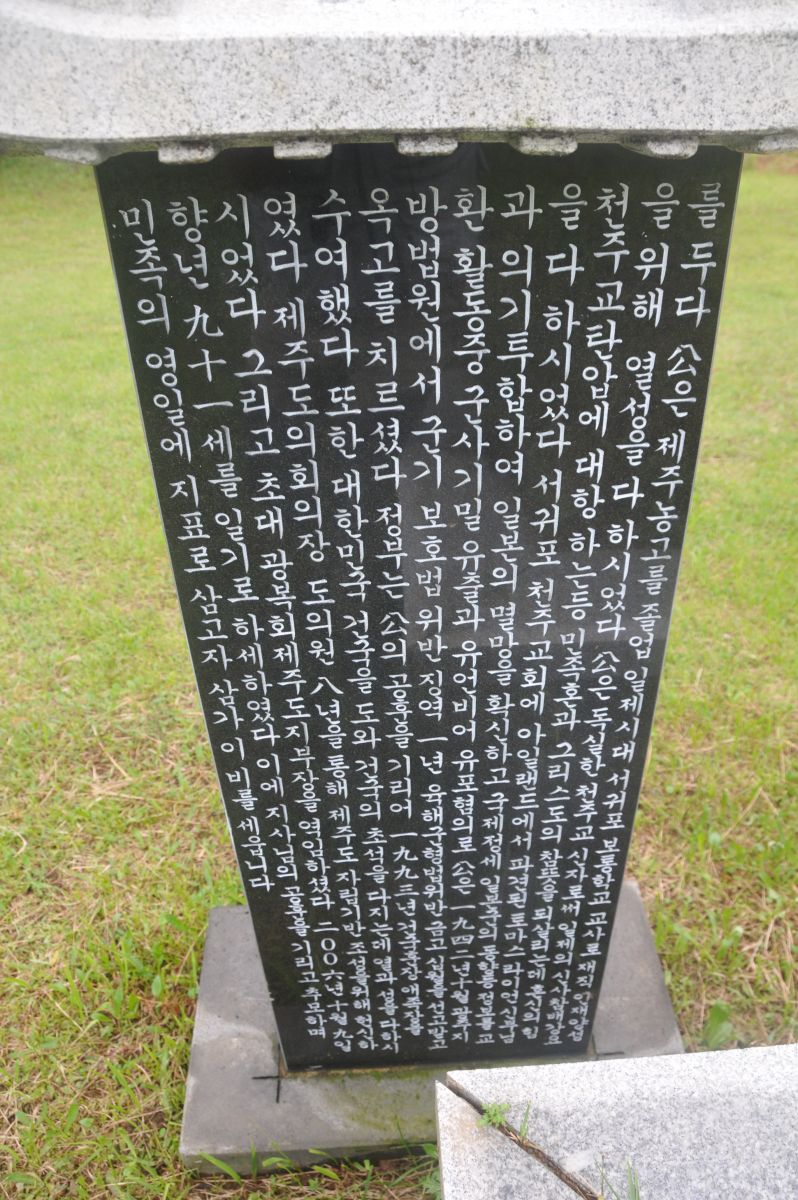 를 두다 公은 제주농고를 졸업 일제시대 서귀포 보통학교 교사로 재직 인재양성
을 위해 열성을 다 하시었다 公은 독실한 천주교 신자로써 일제의 신사참배강요
천주교탄압에 대항 하는등 민족혼과 그리스도의 참뜻을 되살리는데 혼신의 힘
을 다 하시었다 서귀포 천주교회에 아일랜드에서 파견된 토마스 라이언신부님
과 의기투합하여 일본의 멸망을 확신하고 국제정세 일본군의 동향등 정보를 교
환 활동중 군사기밀 유출과 유언비어 유포혐의로 公은 一九四二년十월 광주지
방법원에서 군기 보호법 위반 징역 一년 육해군형법위반 금고 십월을 선고받고
옥고를 치르셨다 정부는 公의 공훈을 기리어 一九九三년 건국훈장 애족장을
수여했다 또한 대한민국 건국을 도와 건국의 초석을 다지는데 열과 성을 다하시
였다 제주도의회의장 도의원 八년을 통해 제주도 자립기반 조성을 위해 헌신하
시었다 그리고 초대 광복회제주도지부장을 역임하셨다 二00六년 十월 九일
향년 九十一세를 일기로 하세하였다 이에 지사님의 공훈을 기리고 추모하며
민족의 영일에 지표로 삼고자 삼가 이 비를 세웁니다